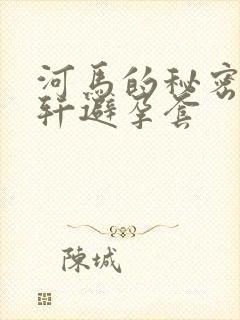 河馬的秘密
軒避孕套
陳城